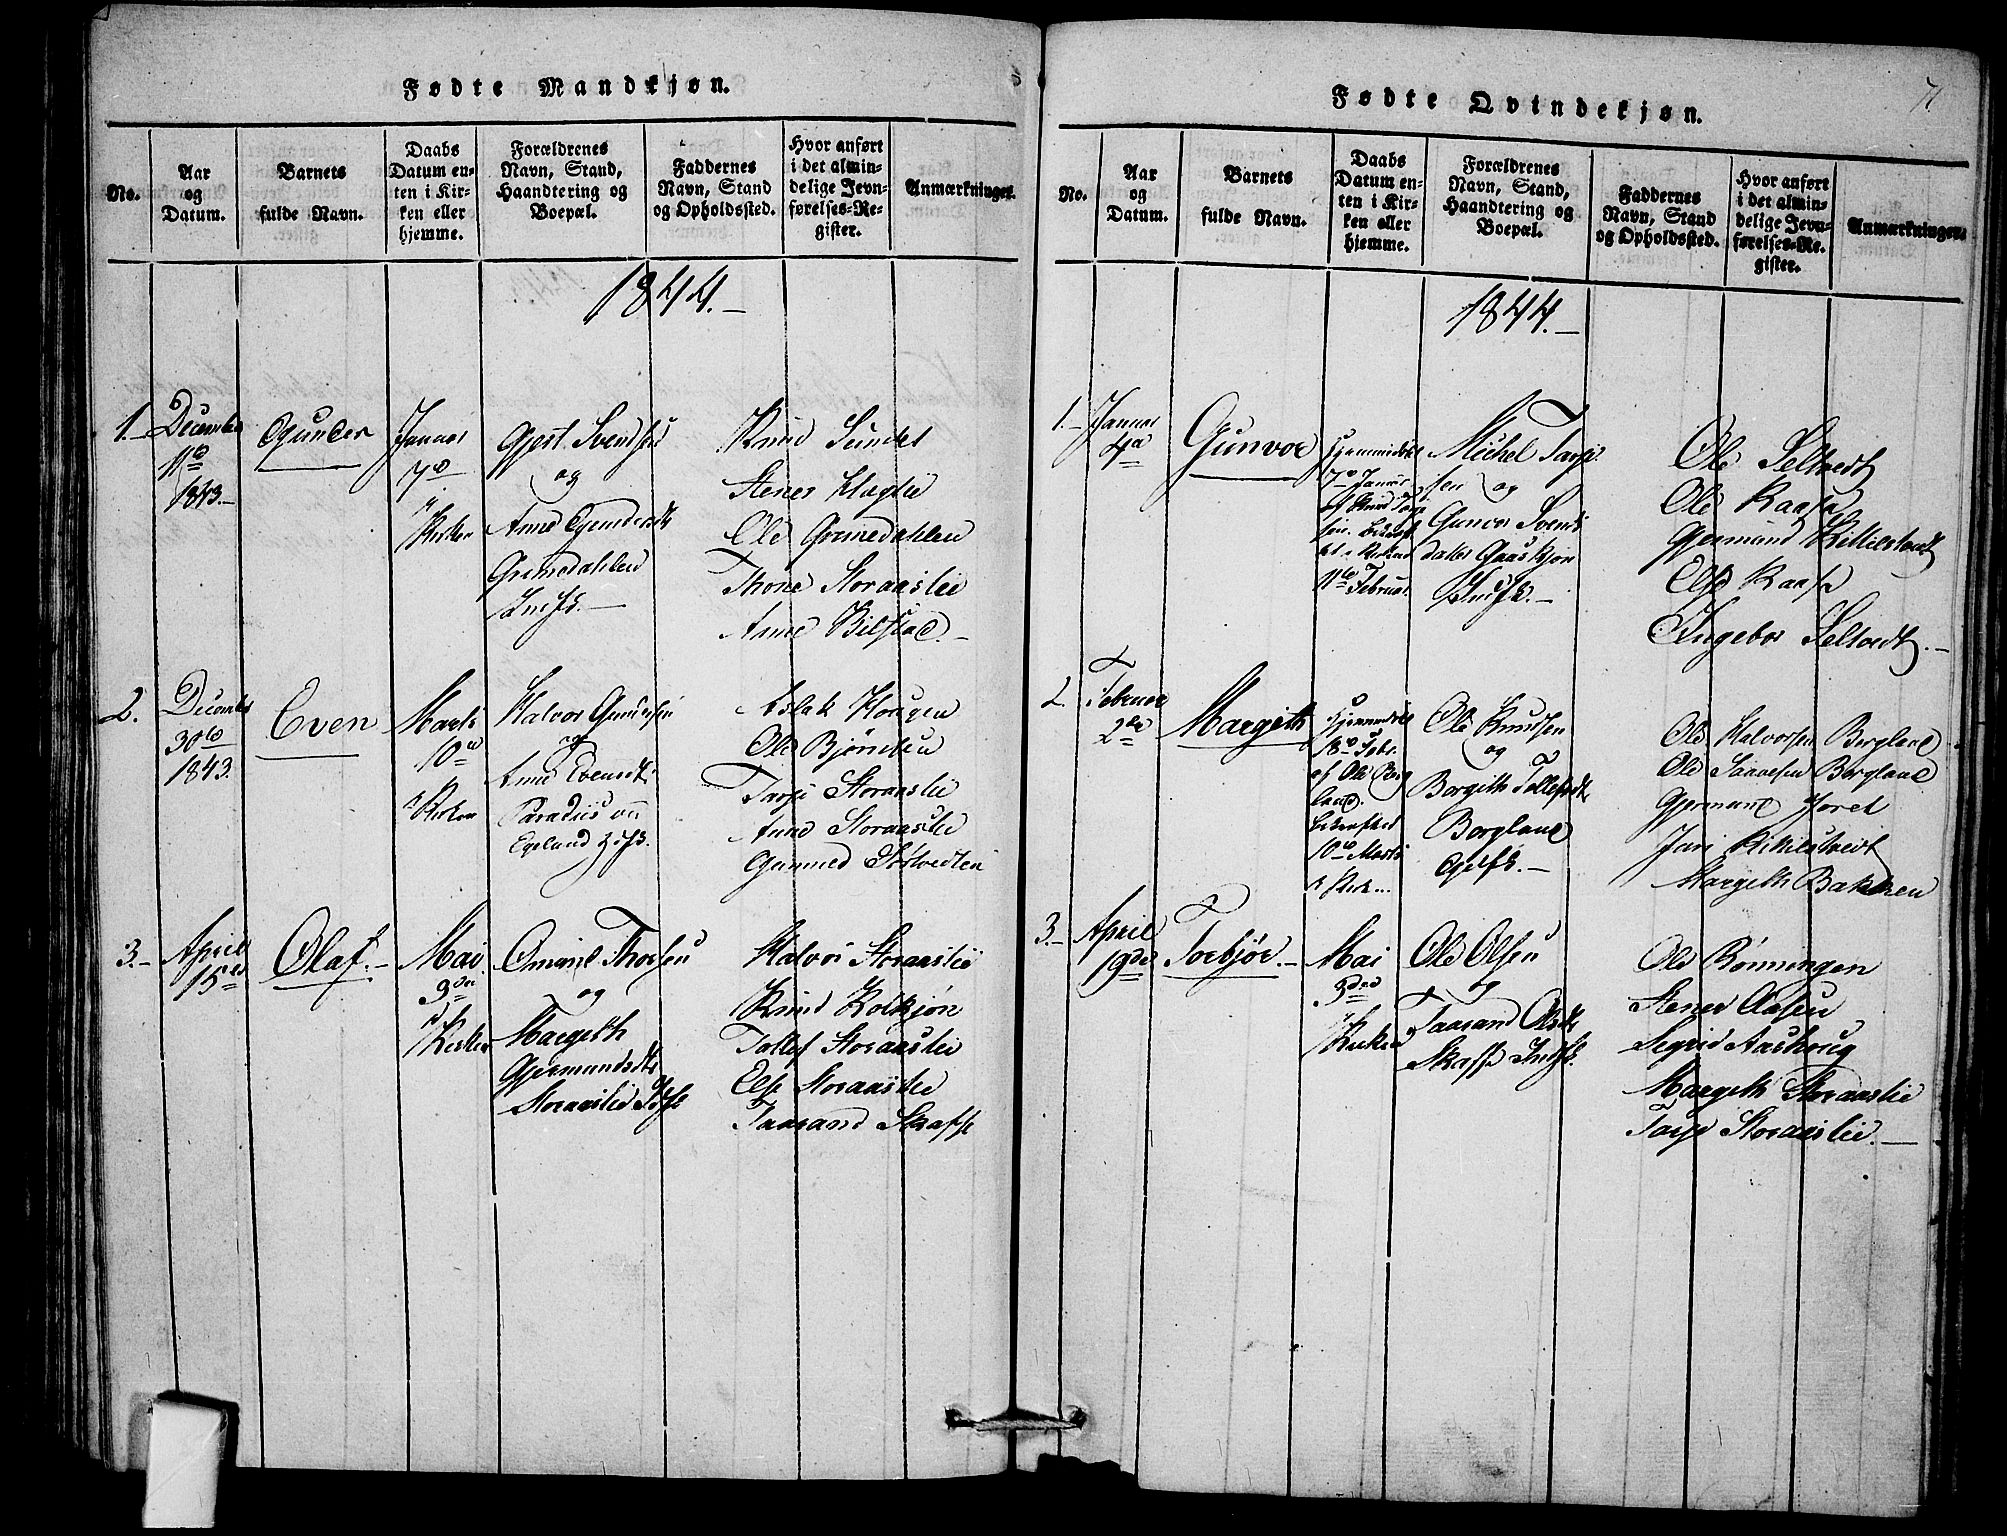 Fødte Mandkjøn.
No.
Aar
og
Datum.
Barnets
fulde Navn.
Daabs
Datum en-
ten i Kir-
ken eller
hjemme.
Forældrenes
Navn, Stand,
Haandtering og
Boepæl.
Faddernes
Navn, Stand
og Opholdssted.
Hvor anført
i det almin-
delige Jevn-
førelses-Re-
gister.
Anmærkninger.
1844.-
1.-
December
11te
1843.-
Gunder
Januar
7de
Kirken
Gjest Svendsen
og
Anne Evensdt
Grimedahlen
Knud Sundet
Stener
Ole Grimedahlen
Thone Storaaslie
Anne Bilstad.-
2.
December
30te
1843.
Even
Marts
10de
i Kirken
Halvor Gundersen
og
Anne Evensdt
Paradiis
Egeland
Aslak Hougen
Ole Bjørnebun
Tarje Storaaslie
Anne Storaaslie
Gunnild
3.-
April
15de
Olaf.-
Mai
3die
Kirken
Omund Thorsen
og
Margith
Gjermundsdt
Storaaslie
Halvor Storaaslie
Knud Kolkjøn
Tollef Storaaslie
Else Storaaslie
Taarand Skafse
Fødte Qvindekjøn.
71
No.
Aar
og
Datum.
Barnets
fulde Navn.
Daabs
Datum en-
ten i Kir-
ken eller
hjemme.
Forældrenes
Navn, Stand,
Haandtering og
Boepæl.
Faddernes
Navn, Stand
og Opholdssted.
Hvor anført
i det almin-
delige Jevn-
førelses-Re-
gister.
Anmærkninger.
1844.-
1.-
Januar
4de
Gunvor
Hjemmedøbt
7de Januar
af Knud Tarje
sen
i Kirken
11te Februar
Michel Tarje-
sen og
Gunvor Svends
datter Gaaskjøn
Ole Seltvedt
Ole Raase
Gjermund Kittilstvedt
Else Raase
Ingebor Seltvedt.-
2.
Februar
2de
Margith
Hjemmedøbt
18de Febr.
af Ole Berg
land.
Bekræftet
10de Marts
i Kirk...
Ole Knudsen
og
Borgith Tollefsdt
Bergland
Ole Halvorsen Bergland
Ole Saavesen Bergland
Gjermund
Jori Kittilstvedt
Margith Bakken
3.-
April
19de
Torbjør.-
Mai
3die
Kirken
Ole Olsen
og
Taarand Olsdt
Skafse
Ole Rønningen
Stener Aasen
Sigrid Aashoug
Margith Storaaslie
Tarje Storaaslie.-